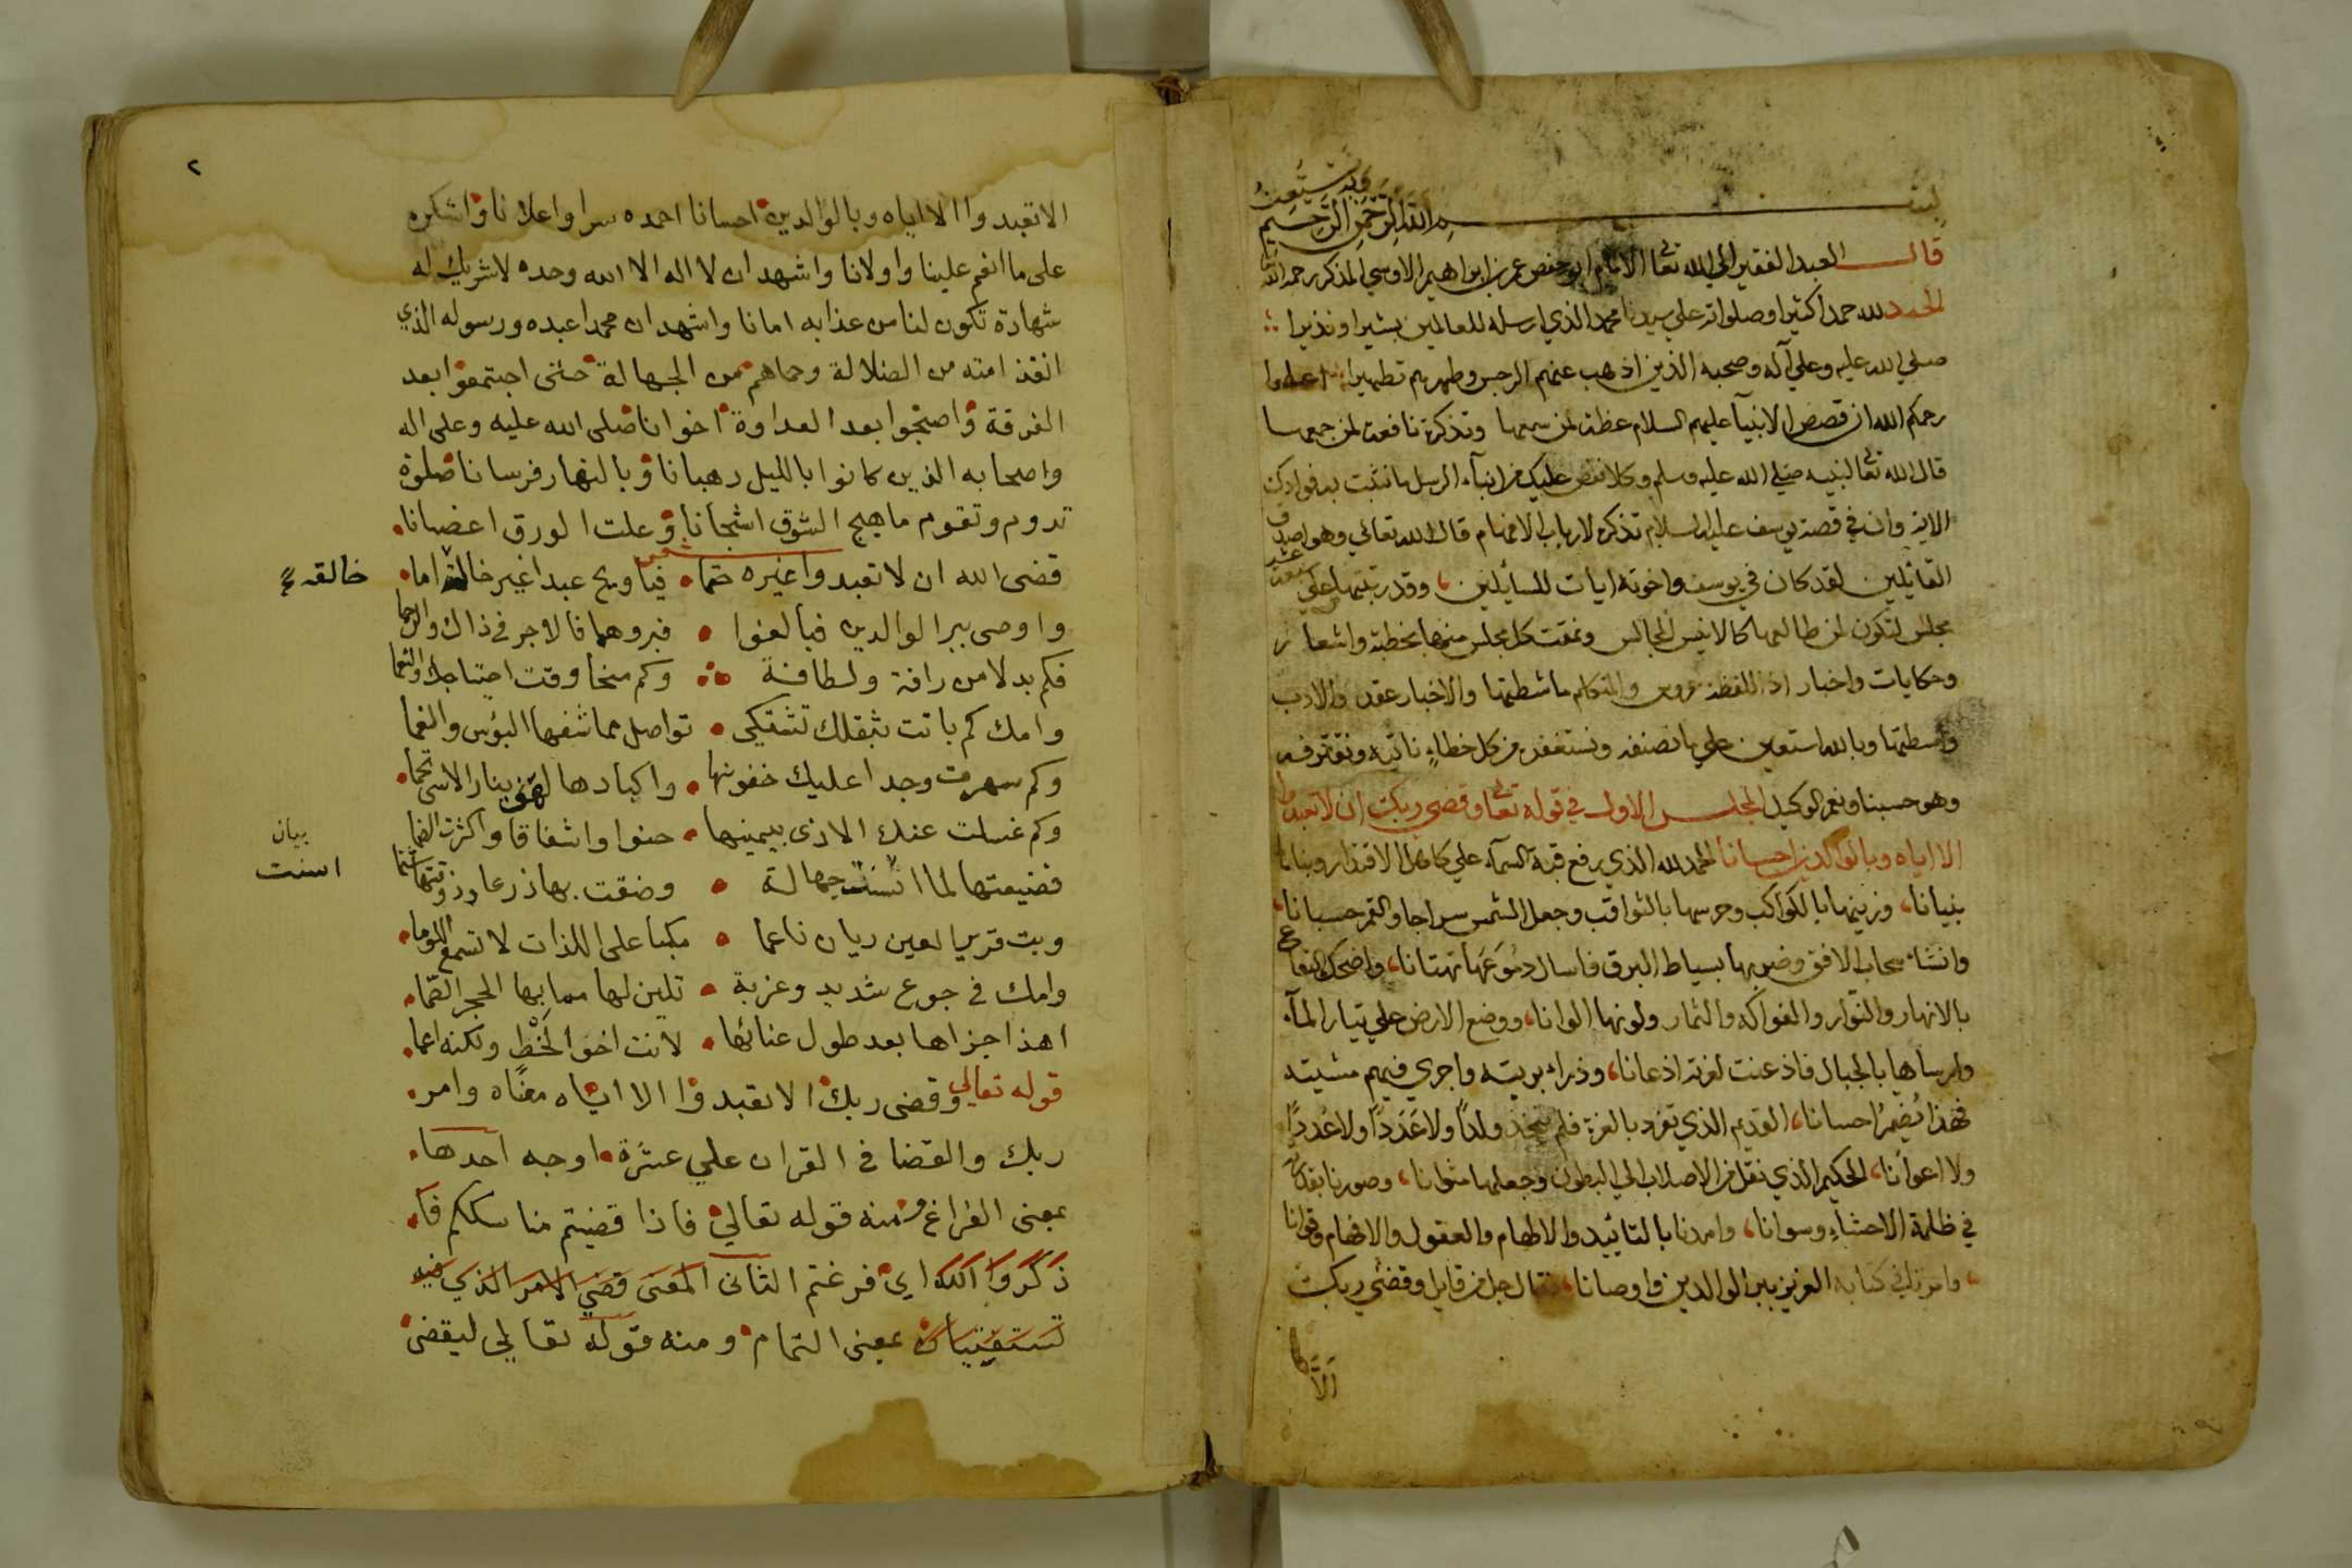 بسم الله الرحمن الرحيم وبه نستعين
قال العبد الفقير الي الله تعا الامام ابو حفص عمر بن ابراهيم الاوسي المذكر رحمه الله
الحمد لله حمدا كثيرا وصلواته علي سيدنا محمد الذي ارسله للعالمين بشيرا ونذيرا
صلي الله عليه وعلي آله وصحبه الذين اذهب عنهم الرجس وطهرهم تطهيرا اعلموا
رحمكم الله ان قصص الانبيآ عليهم السلام عظة لمن سمعها وتذكرة نافعة لمن جمعها
قال الله تعا لنبيه صلي الله عليه وسلم وكلا نقص عليك من انبآء الرسل ما نثبت به فوادك
الاية وان في قصة يوسف عليه السلام تذكرة لارباب الافهام قال الله تعالي وهو اصدق
القائلين لقد كان في يوسف واخوته ايات للسايلين وقد رتبتها علي سبعة عشر
مجلس لتكون لمن طالعها كالانيس المجالس ونمقت كل مجلس منها بخطبة واشعار
وحكايات واخبار اذ اللفظة عروس والمتكلم ماشطتها والاخبار عقد والادب
واسطتها وبالله استعين علي ما نصنفه ونستغفره من كل خطاء ناتيه ونقترفه
وهو حسبنا ونعم الوكيل المجلس الاول في قوله تعا وقضي ربك ان لا تعبدوا
الا اياه وبالوالدين احسانا الحمد لله الذي رفع قبة السمآء علي كاهل الاقتدار وبناها
بنيانا وزينها بالكواكب وحرسها بالثواقب وجعل الشمس سراجا والقمر حسبانا
وانشاء سحاب الافق وضربها بسياط البرق فاسال دموعها تهتانا واضحك البقاع
بالانهار والنوار والفواكه والثمار ولونها الوانا ووضع الارض علي تيار المآء
وارساها بالجبال فاذعنت لعزته اذعانا وذراء بريته واجري فيهم مشيته
فهذا يضمر احسانا القديم الذي تفرد بالعزة فلم يتخذ ولدا ولا عددا ولا عددا
ولا اعوانا الحكيم الذي نقل من الاصلاب الي البطون وجعلها مثوانا وصورنا بقدرته
في ظلمة الاحشاء وسوانا وامدنا بالتائيد والالهام والعقول والافهام وقوانا
وامرنا في كتابه العزيز ببر الوالدين واوصانا فقال جل من قايل وقضي ربك
الا
٢
الا تعبدوا الا اياه وبالوالدين احسانا احمده سرا واعلانا واشكره
على ما انعم علينا واولانا واشهد ان لا اله الا الله وحده لا شريك له
شهادة تكون لنا من عذابه امانا واشهد ان محمدا عبده ورسوله الذي
انقذ امته من الضلالة وحماهم من الجهالة حتى اجتمعوا بعد
الفرقة واصبحوا بعد العداوة اخوانا صلى الله عليه وعلى اله
واصحابه الذين كانوا بالليل رهبانا وبالنهار فرسانا صلوة
تدوم وتقوم ما هيج الشوق اشجانا وعلت الورق اغصانا
قضى الله ان لا تعبدوا غيره حتما فيا ويح عبدا غير خالقه اما
خالقه
واوصى ببر الوالدين فبالغوا فبروهما فالاجر في ذاك والرحما
فكم بدلا من رافة ولطافة وكم منحا وقت احتياجك والنعما
وامك كم باتت بثقلك تشتكي تواصل مما شفها البؤس والغما
وكم سهرت وجدا عليك جفونها واكبادها لهفى بنار الاسى تحما
وكم غسلت عنك الاذى بيمينها حنوا واشفاقا واكثرت الضما
فضيعتها لما اسنت جهالة وضقت بها ذرعا وذوقتها سما
بيان
اسنت
وبت قرير العين ريان ناعما مكبا على اللذات لا تسمع اللوما
وامك في جوع شديد وغربة تلين لها مما بها الحجر الصما
اهذا جزاها بعد طول عنائها لانت اخو الخط ولكنه اعما
قوله تعالي وقضى ربك الا تعبدوا الا اياه معناه وامر
ربك والقضا في القران علي عشرة اوجه احدها
بمعنى الفراغ ومنه قوله تعالي فاذا قضيتم مناسككم فا
ذكروا الله اي فرغتم الثانى المعنى قضي الامر الذي فيه
تستفتيان بمعنى التمام ومنه قوله تعالي ليقضى